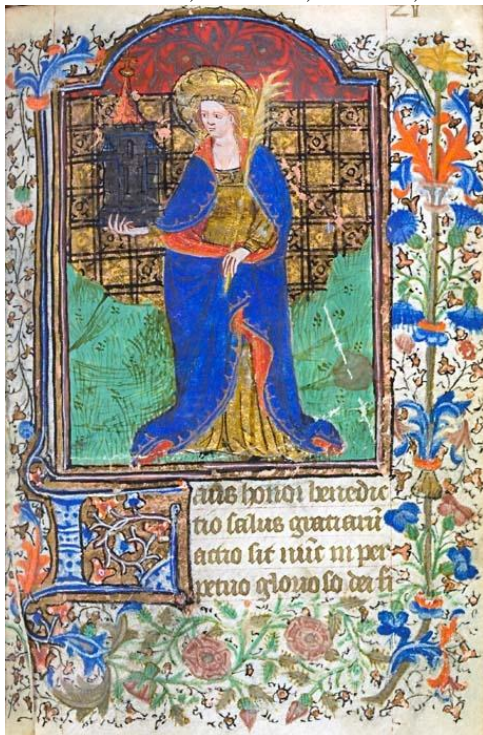 21
Laus honor benedic
tio salus gratiarū
actio sit nūc in per
petuo glorioso dei fi